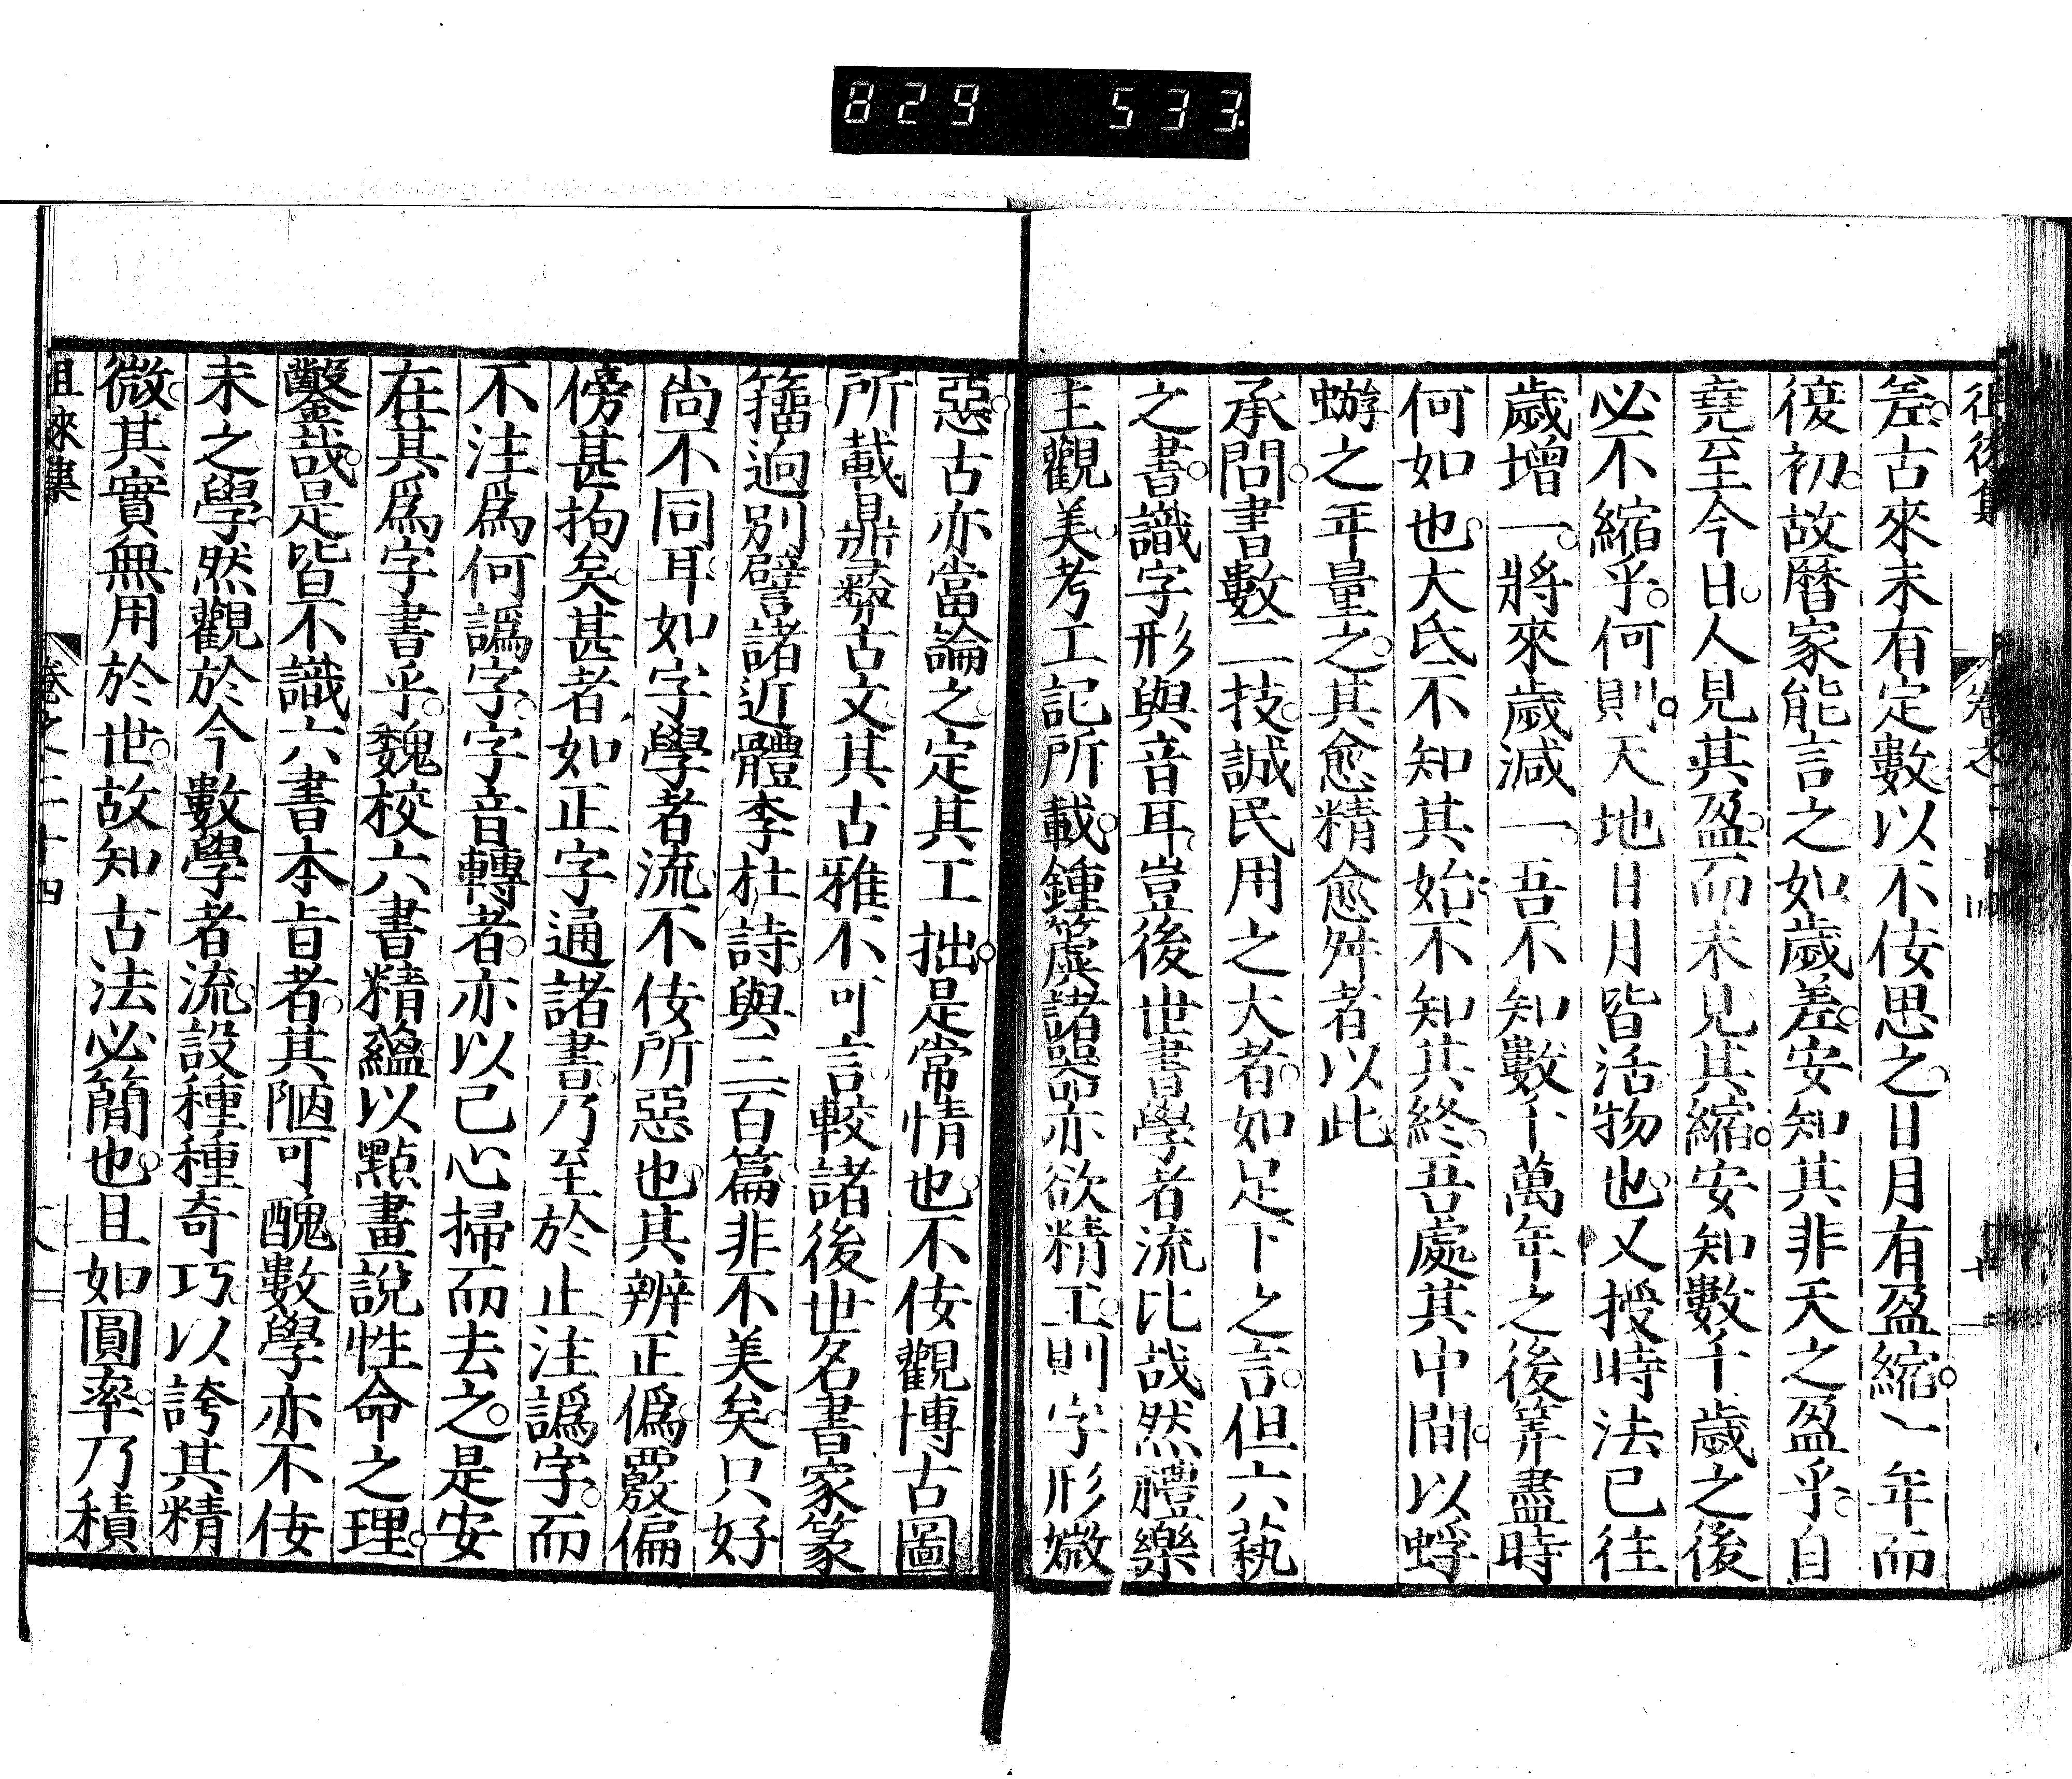 829 533
差古來未有定數以不佞思之日月有盈縮一年而
復初故曆家能言之如歲差安知其非天之盈乎自
堯至今日人見其盈而未見其縮安知數千歲之後
必不縮乎何則天地日月皆活物也又授時法已往
歲增一將來歲減一吾不知數千萬年之後筭盡時
何如也大氐不知其始不知其終吾處其中間以蜉
蝣之年量之其愈精愈舛者以此
承問書數二技誠民用之大者如足下之言但六藝
之書識字形與音耳豈後世書學者流比哉然禮樂
主觀美考工記所載鍾簴諸器亦欲精工則字形媺
惡古亦當論之定其工拙是常情也不佞觀博古圖
所載鼎彝古文其古雅不可言較諸後世名書家篆
籀迥別譬諸近體李杜詩與三百篇非不美矣只好
尚不同耳如字學者流不佞所惡也其辨正僞覈偏
傍甚拘矣甚者如正字通諸書乃至於止注譌字而
不注爲何譌字字音轉者亦以己心掃而去之是安
在其爲字書乎魏校六書精蘊以點畫說性命之理
鑿哉是皆不識六書本旨者其陋可醜數學亦不佞
未之學然觀於今數學者流設種種奇巧以誇其精
微其實無用於世故知古法必簡也且如圓率乃積
徂徠集 卷之二十四